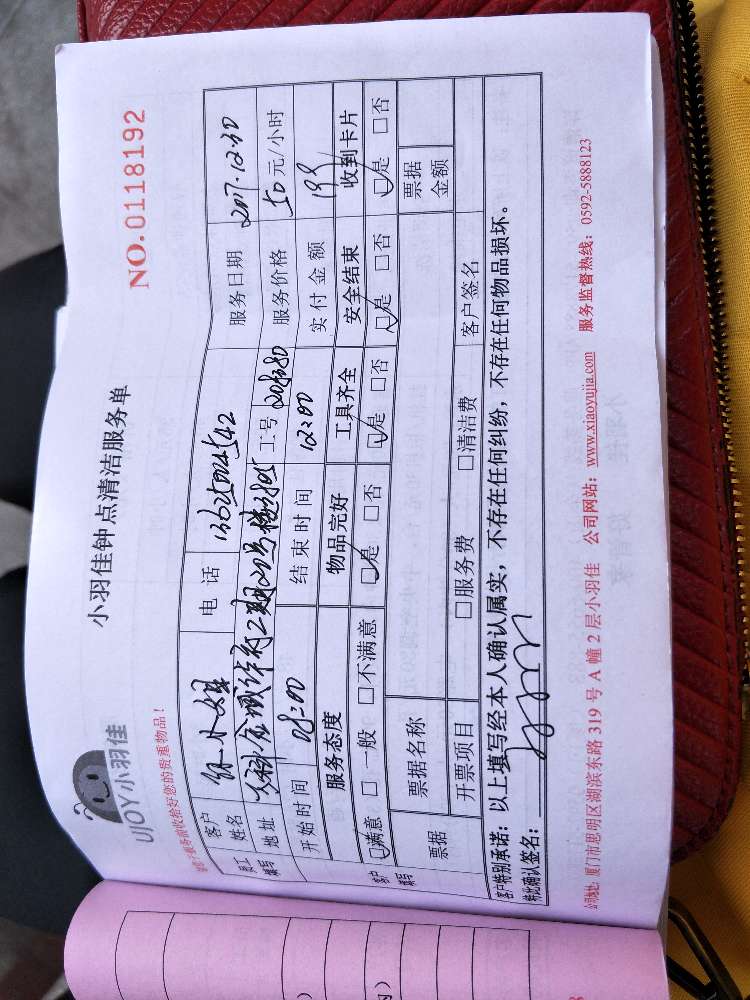 UJOY小羽佳
小羽佳钟点清洁服务单
NO.0118192
请您于服务前收拾好您的贵重物品！
员工填写
客户姓名 小姐 电话 服务日期 2017.12.30
地址 万科金域华府二期 工号 服务价格 50元/小时
开始时间 08:00 结束时间 12:00 实付金额 199
客户填写
服务态度 物品完好 工具齐全 安全结束 收到卡片
□满意 □一般 □不满意 □是 □否 □是 □否 □是 □否 □是 □否
票据 票据名称 票据金额
开票项目 □服务费 □清洁费 客户签名
客户特别承诺：以上填写经本人确认属实，不存在任何纠纷，不存在任何物品损坏。
特此确认签名：
公司地址：厦门市思明区湖滨东路 319 号 A 幢 2 层小羽佳 公司网站：www.xiaoyujia.com 服务监督热线：0592-5888123